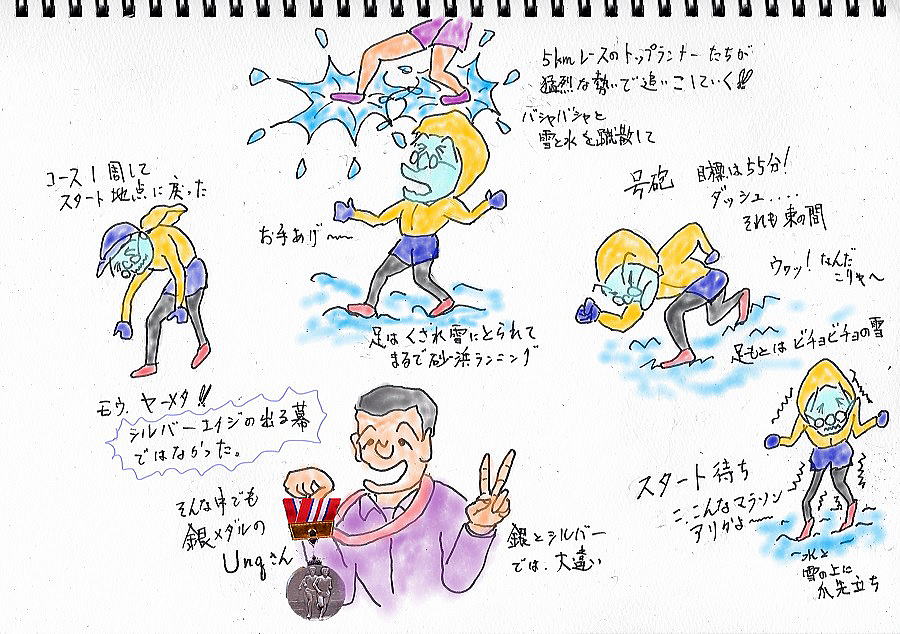 スタート待ち
こ、こんなマラソン
アリかよ〜〜
氷と
雪の上に
爪先立ち
号砲
目標は55分!
ダッシュ....
それも束の間
ウワッ!なんだ
こりゃ〜
足もとはビチョビチョの雪
5kmレースのトップランナーたちが
猛烈な勢いで追いこしていく!!
バシャバシャと
雪と水を蹴散して
お手あげ〜〜
足はくされ雪にとられて
まるで砂浜ランニング
コース1周して
スタート地点に戻った
モウ、ヤーメタ!!
シルバーエイジの出る幕
ではなかった。
そんな中でも
銀メダルの
Unqさん
銀とシルバー
では、大違い